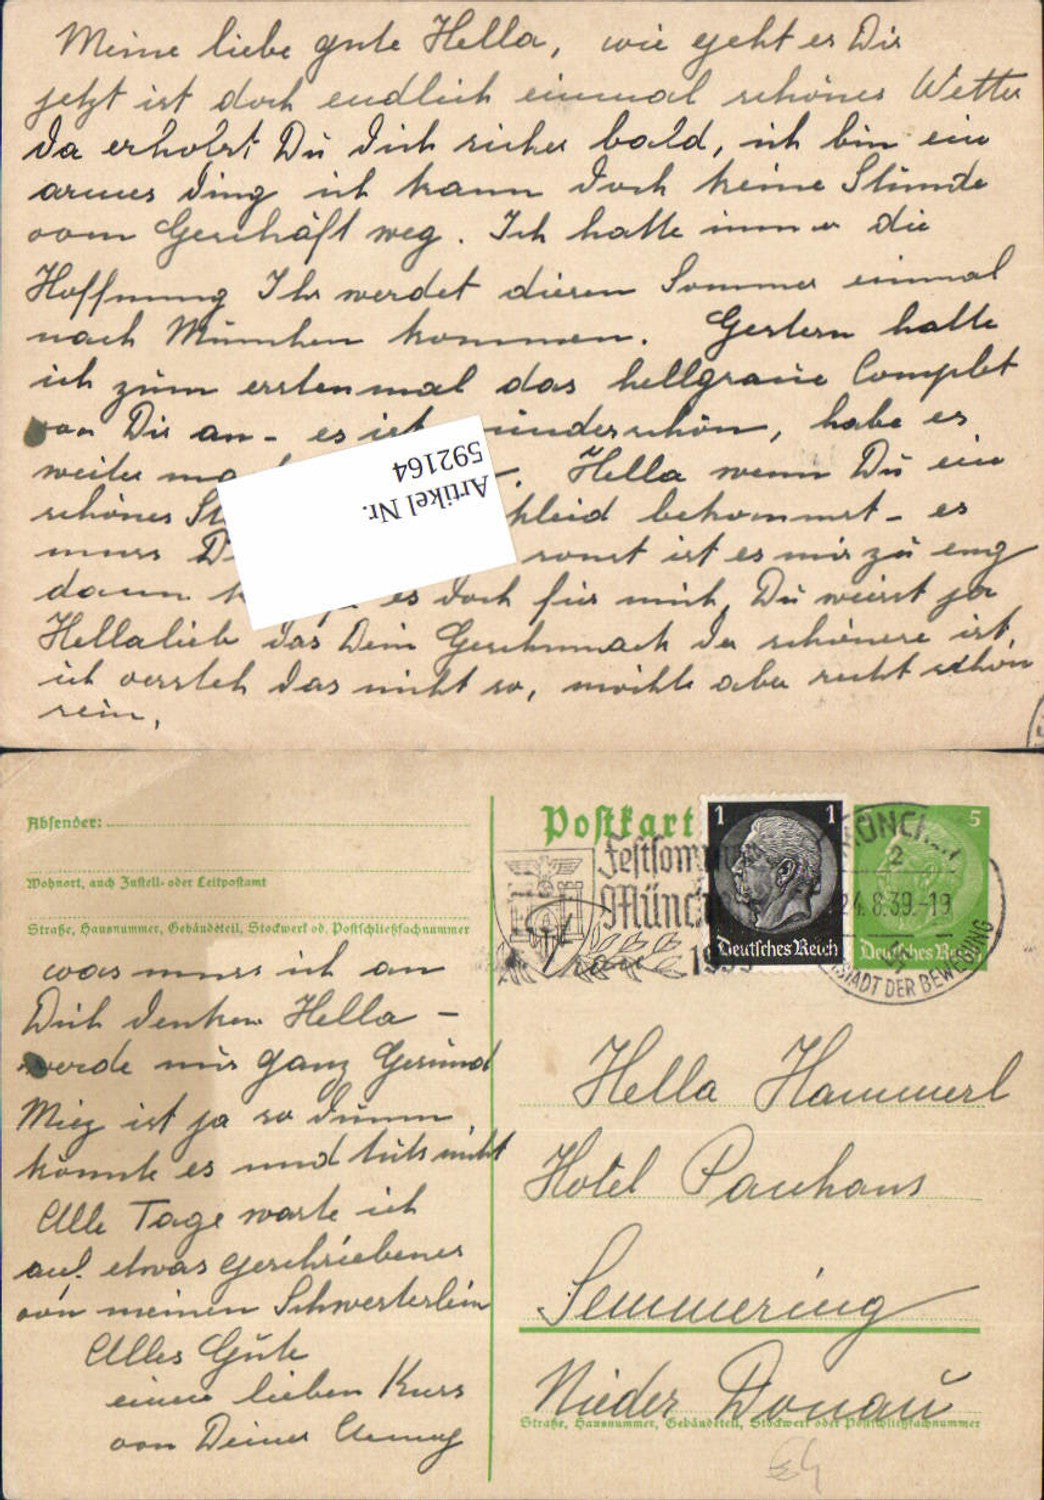 Meine liebe gute Hella, wie geht es Dir
jetzt ist doch endlich einmal schönes Wetter
da erholst Du Dich sicher bald, ich bin ein
armes Ding ich kann doch keine Stunde
vom Geschäft weg. Ich hatte immer die
Hoffnung Ihr werdet diesen Sommer einmal
nach München kommen. Gestern hatte
ich zum erstenmal das hellgraue Complet
von Dir an - es ist wunderschön, habe es
weiter Hella wenn Du ein
schönes kleid bekommst - es
muss sonst ist es mir zu eng
dann es doch für mich, Du weisst ja
Hellalieb das Dein Geschmack der schönere ist,
ich versteh das nicht so, möchte aber recht schön
sein,
Artikel Nr.
592164
Absender:
Wohnort, auch Zustell- oder Leitpostamt
Straße, Hausnummer, Gebäudeteil, Stockwerk od. Postschließfachnummer
was muss ich an
Dich denken Hella -
werde mir ganz Gesund
Mieg ist ja so dumm,
könnte es und tuts nicht
Alle Tage warte ich
auf etwas geschriebenes
von meinen Schwesterlein
Alles Gute
einen lieben Kuss
von Deiner
Postkart
Festsom
Münc
1 1
Deutsches Reich
5
Deutsches Re
MÜNCH
2
24.8.39.-19
STADT DER BEWEGUNG
Hella Hammerl
Hotel Panhans
Semmering
Nieder Donau
Straße, Hausnummer, Gebäudeteil, Stockwerk oder Postschließfachnummer